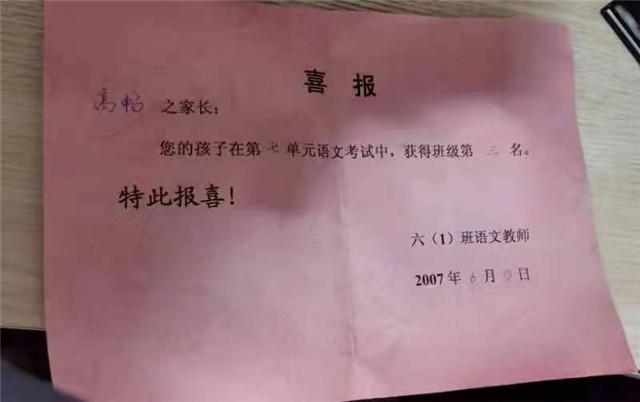 喜报
高畅之家长：
您的孩子在第七单元语文考试中，获得班级第三名。
特此报喜！
六（1）班语文教师
2007年6月 日